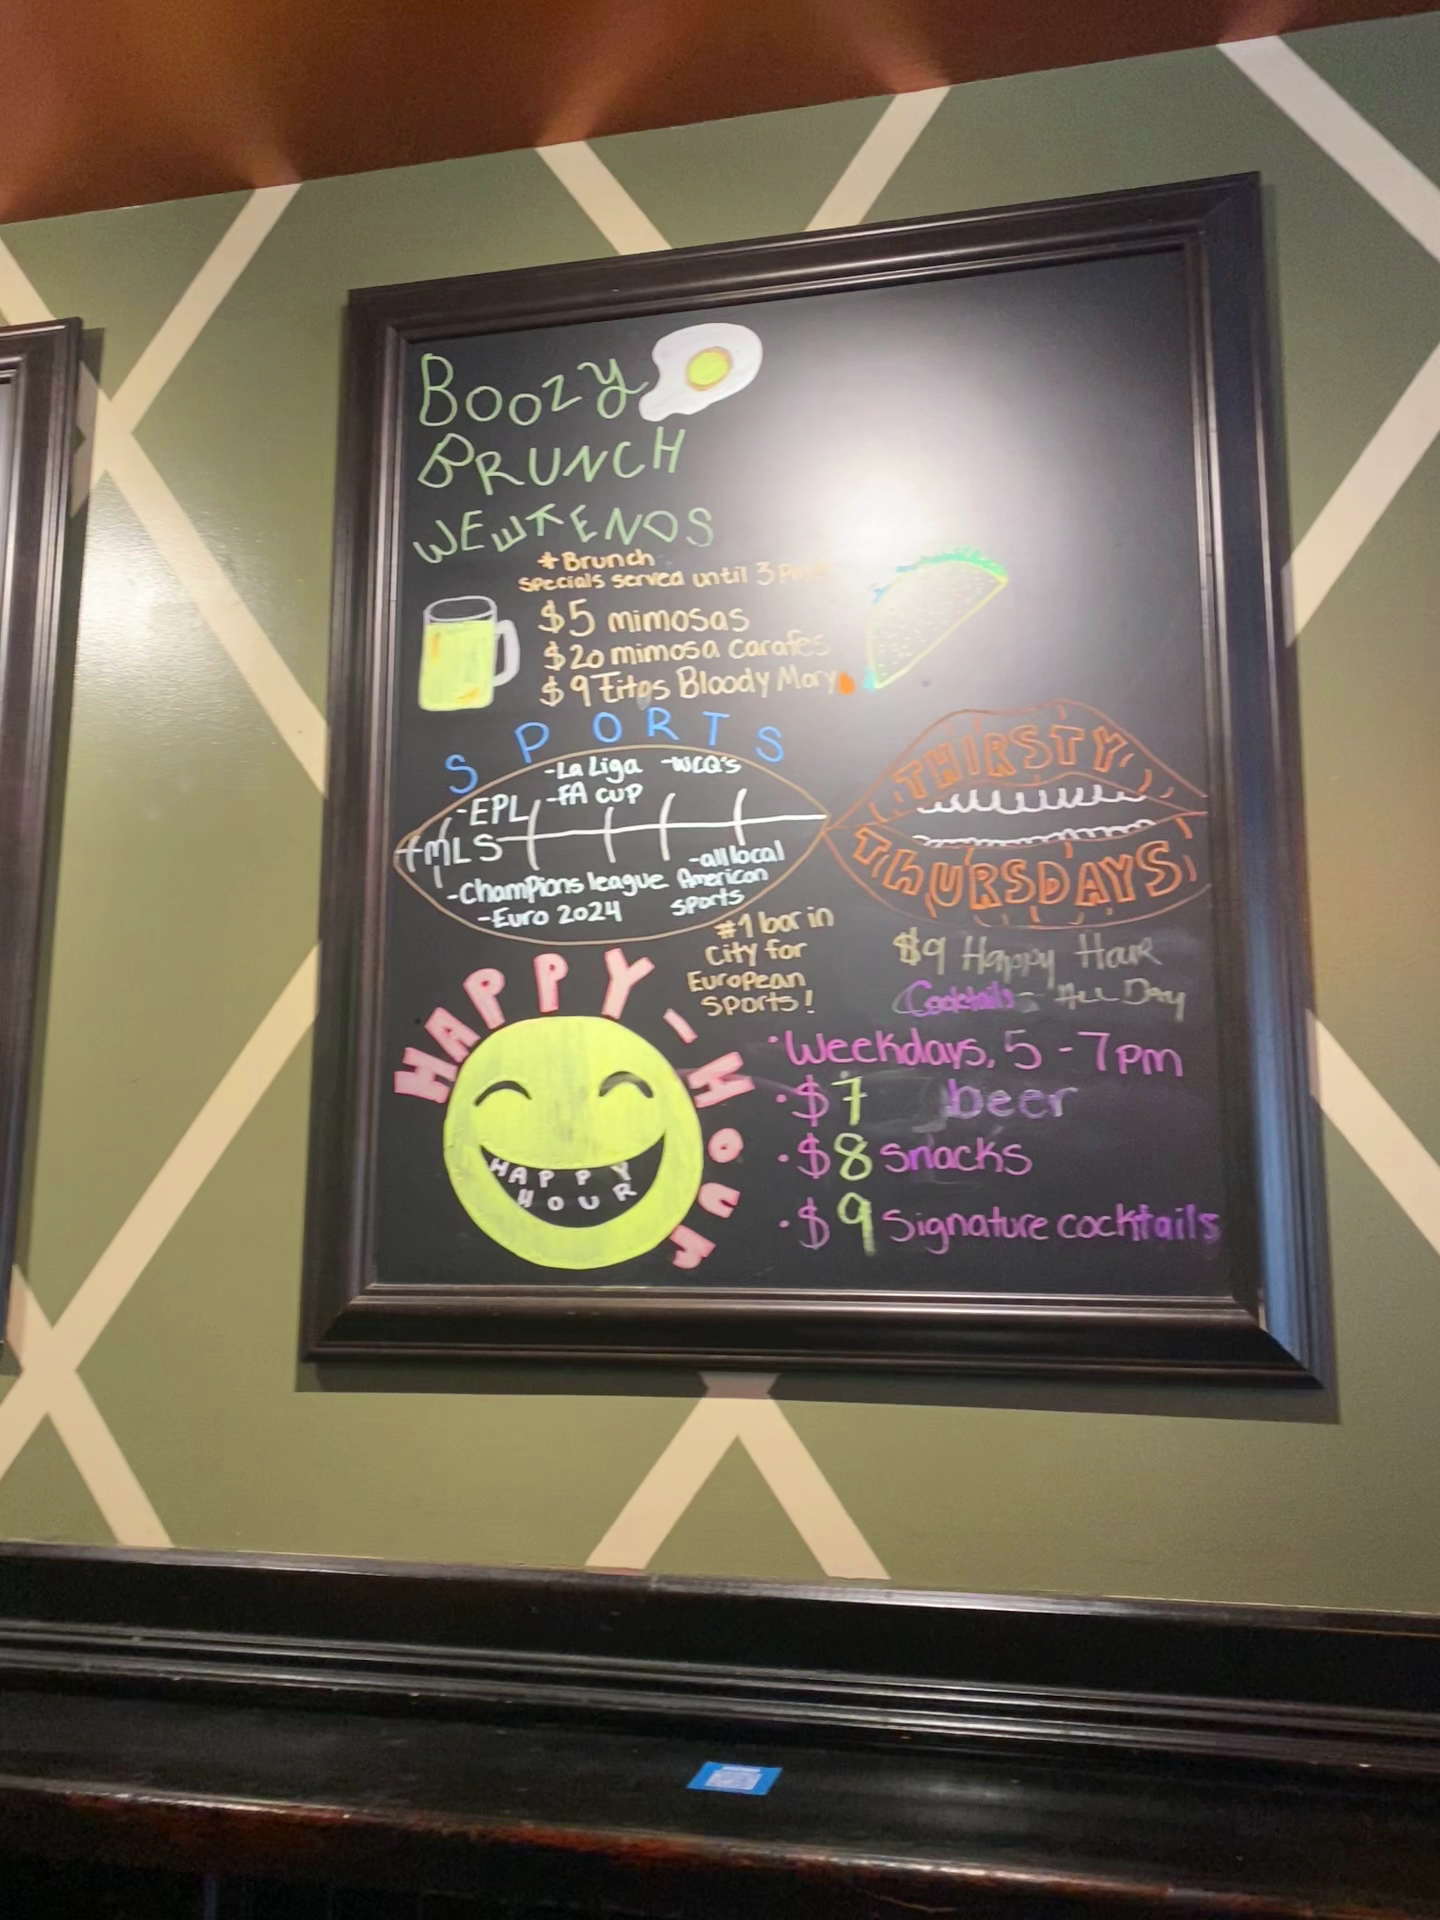 BOOZY
BRUNCH
WEEKENDS
*Brunch
specials served until 3
$5 mimosas
$20 mimosa carafes
$9 Titos Bloody Mary
SPORTS
-La Liga
-WCQ's
-EPL
-FA CUP
-MLS
-all local
American
sports
-Champions league
-Euro 2024
#1 bar in
City for
European
Sports!
THIRSTY
THURSDAYS
$9 Happy Hour
Cocktails - ALL Day
HAPPY-HOUR
HAPPY
HOUR
·Weekdays, 5-7pm
·$7 beer
·$8 snacks
·$9 Signature cocktails